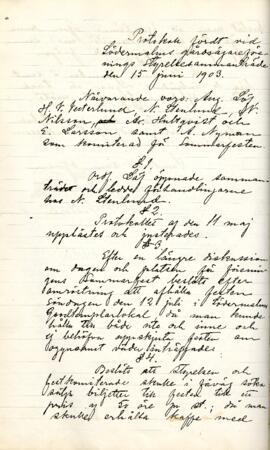 Protokoll fördt vid
Södermalms gårdsägareför-
nings Styrelsesammanträde
den 15 juni 1903.
Närvarande voro Aug. Löf
H. V. Vesterlund, N. Stenlund,
Nilsson, Av. Hultqvist och
E. Larsson samt A. Nyman
som komiterad för Sommarfesten.
§ 1.
Ordf. Löf öppnade samman-
trädet och ledde förhandlingarne
hos N. Stenlund.
§ 2.
Protokollet af den 11 maj
upplästes och justerades.
§ 3.
Efter en längre diskussion
om dagen och platsen för förenin-
gens Sommarfest beslöts efter
omröstning att afhålla festen
Söndagen den 12 juli i Södermalms
Goodtemplarlokal då man kunde
hålla till både ute och inne och
ej behöfva uppskjuta festen om
ogynsamt väder inträffade.
§ 4.
Beslöts att styrelsen och
festkomiterade skulle i förväg söka
sälja biljetter till festen till ett
pris af 50 öre pr st; då man
skulle erhålla kaffe med